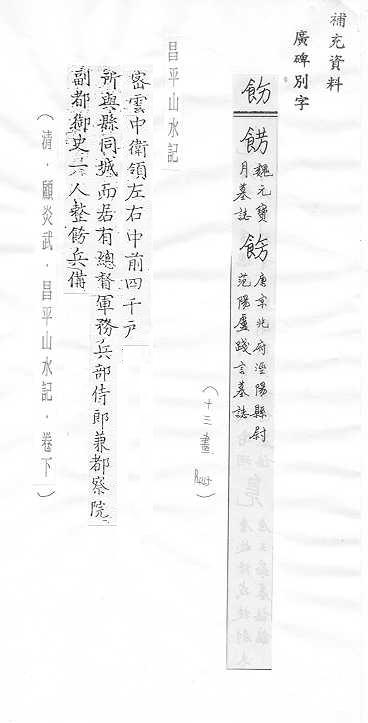 補充資料
廣碑別字
飭
餝魏元寶月墓誌飭唐京兆府涇陽縣尉范陽盧踐言墓誌
（十三畫
昌平山水記
密雲中衛領左右中前四千戶
所與縣同城而居有總督軍務兵部侍郎兼都察院
副都御史一人整飭兵備
（清．顧炎武．昌平山水記．卷下）